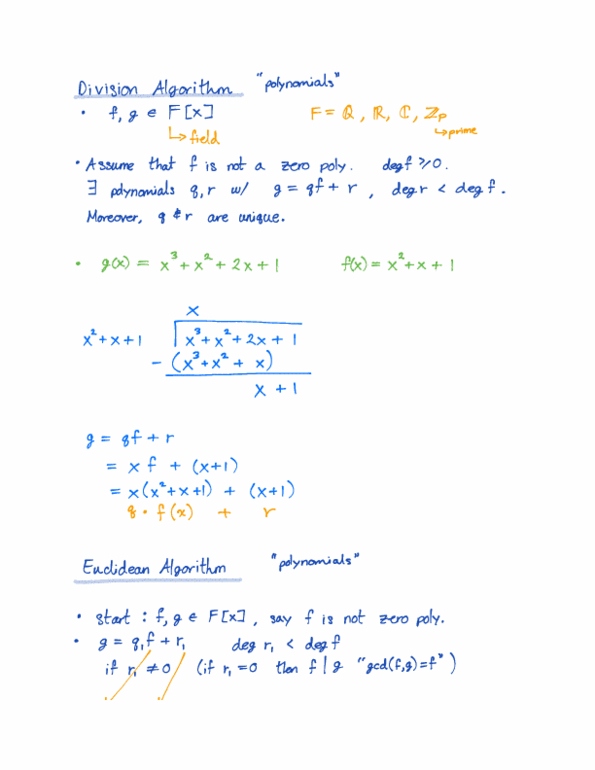 Division Algorithm "polynomials"
• f, g ∈ F[x] F = Q, R, C, Zp
↳ field ↳ prime
• Assume that f is not a zero poly. deg f ⩾ 0.
∃ polynomials q, r w/ g = qf + r, deg r < deg f.
Moreover, q & r are unique.
• g(x) = x³ + x² + 2x + 1 f(x) = x² + x + 1
x
x² + x + 1 x³ + x² + 2x + 1
− (x³ + x² + x)
x + 1
g = qf + r
= x f + (x+1)
= x(x² + x + 1) + (x+1)
q • f(x) + r
Euclidean Algorithm "polynomials"
• start : f, g ∈ F[x], say f is not zero poly.
• g = q₁f + r₁ deg r₁ < deg f
if r₁ ≠ 0 (if r₁ = 0 then f | g "gcd(f,g)=f")